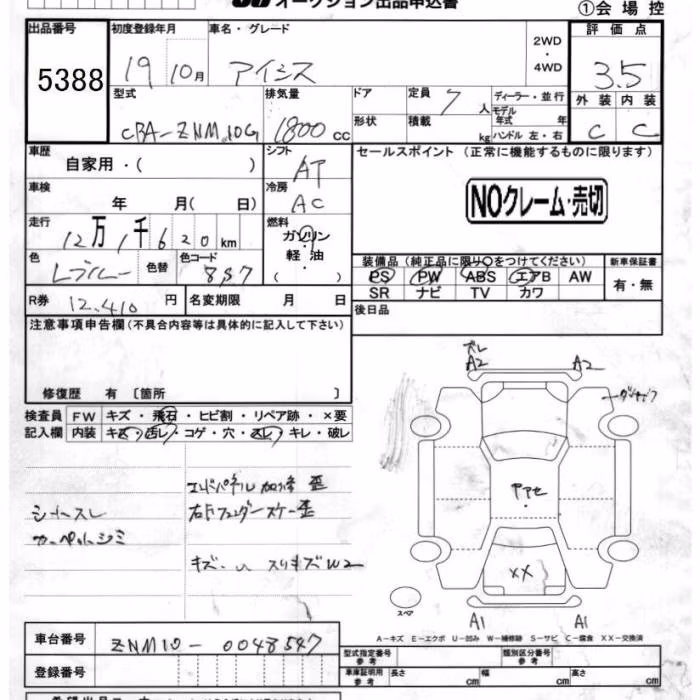 オークション出品申込書
①会場控
出品番号 初度登録年月 車名・グレード 2WD・4WD 評価点
5388 19 10月 アイシス 3.5
型式 排気量 ドア 定員 7人 ディーラー・並行 外装 内装
CBA-ZNM10G 1800cc 形状 積載 kg モデル年式 年 ハンドル 左・右 C C
車歴 シフト セールスポイント (正常に機能するものに限ります)
自家用・( ) AT
車検 冷房 NOクレーム・売切
年 月( 日) AC
走行 燃料
12万1千620km ガソリン
色 色替 色コード 軽油 装備品 (純正品に限り○をつけてください) 新車保証書
897 ( ) PS PW ABS エアB AW 有・無
R券 12,410円 名変期限 月 日 SR ナビ TV カワ
注意事項申告欄 (不具合内容等は具体的に記入して下さい) 後日品
ズレ
A2 A2
修復歴 有 〔箇所 〕
検査員 FW キズ・飛石・ヒビ割・リペア跡・×要
記入欄 内装 キズ・汚レ・コゲ・穴・スレ・キレ・破レ
エンドパネル 加修 歪
シートスレ 右Fフェンダーステー歪
カーペットシミ
スリキズW2
XX
スペア
A1 A1
A-キズ E-エクボ U-凹み W-補修跡 S-サビ C-腐食 XX-交換済
車台番号 ZNM10-0048547 型式指定番号 参考 類別区分番号 参考
登録番号 車庫証明用 参考 長さ cm 幅 cm 高さ cm